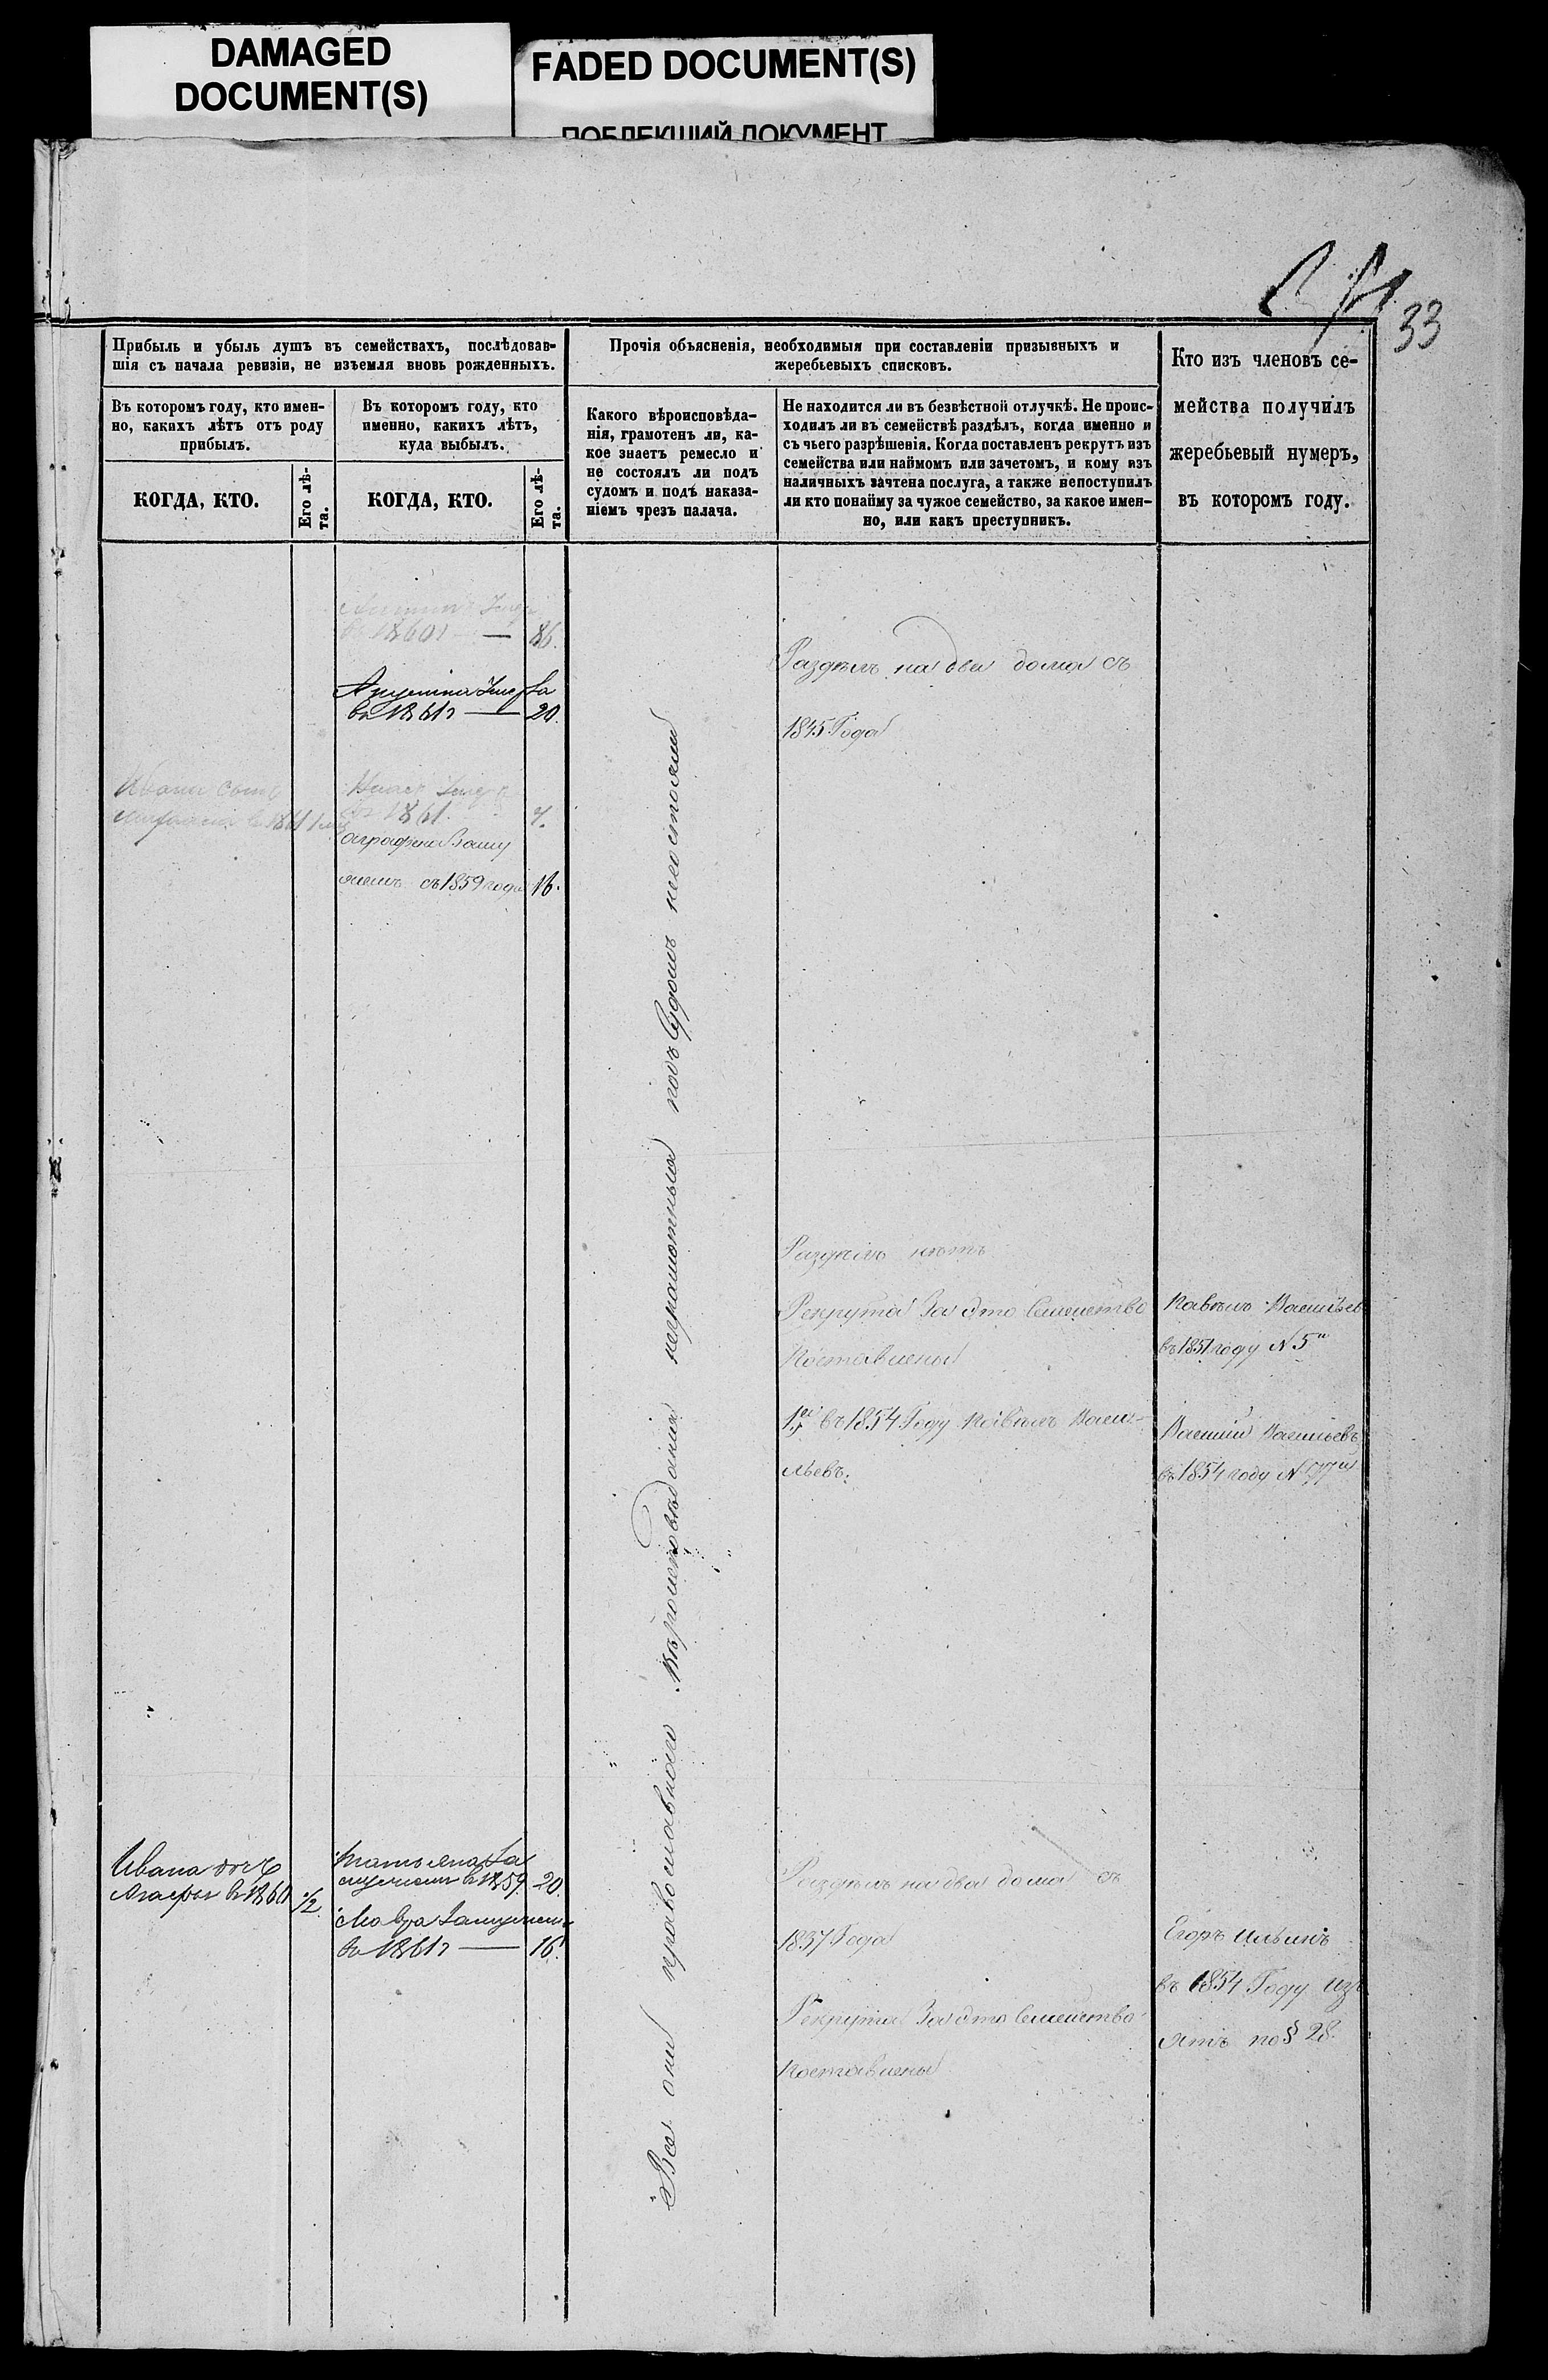 DAMAGED
DOCUMENT(S)
FADED DOCUMENT(S)
ПОБЛЕКШИЙ ДОКУМЕНТ
33
Прибыль и убыль душъ въ семействахъ, послѣдовав-
шія съ начала ревизіи, не изъемля вновь рожденныхъ.
Въ которомъ году, кто имен-
но, какихъ лѣтъ отъ роду
прибылъ.
КОГДА, КТО.
Его лѣ-
та.
Въ которомъ году, кто
именно, какихъ лѣтъ,
куда выбылъ.
КОГДА, КТО.
Его лѣ-
та.
Прочія объясненія, необходимыя при составленіи призывныхъ и
жеребьевыхъ списковъ.
Какого вѣроисповѣда-
нія, грамотенъ ли, ка-
кое знаетъ ремесло и
не состоялъ ли подъ
судомъ и подъ наказа-
ніемъ чрезъ палача.
Не находится ли въ безвѣстной отлучкѣ. Не проис-
ходилъ ли въ семействѣ раздѣлъ, когда именно и
съ чьего разрѣшенія. Когда поставленъ рекрутъ изъ
семейства или наймомъ или зачетомъ, и кому изъ
наличныхъ зачтена послуга, а также непоступилъ
ли кто понайму за чужое семейство, за какое имен-
но, или какъ преступникъ.
Кто изъ членовъ се-
мейства получилъ
жеребьевый нумеръ,
въ которомъ году.
1860 — 86.
въ 1861 — 20.
Ивана сынъ
1861
1861. 7.
аграфена Заму
жемъ съ 1859 года 18.
Раздѣлъ на два дома съ
1845 Года
Все они православнаго вѣроисповѣданія неграмотныя подъ Судомъ несостояли
Раздѣлъ нѣтъ
Рекрута За это Семейство
Поставлены
1й въ 1854 Году Павелъ Васи-
льевъ.
Павелъ Васильевъ
въ 1851 году N 5й
Василій Васильевъ
въ 1854 году N 177й
Ивана дочь
Агафья въ 1860 1/2
Татьяна За
мужемъ въ 1859. 20.
Мавра Замужемъ
въ 1861 — 16.
Раздѣлъ на два дома съ
1837 Года
Рекрута За это Семейство
поставлены
Егоръ Ильинъ
въ 1854 Году изъ
ятъ по § 28.